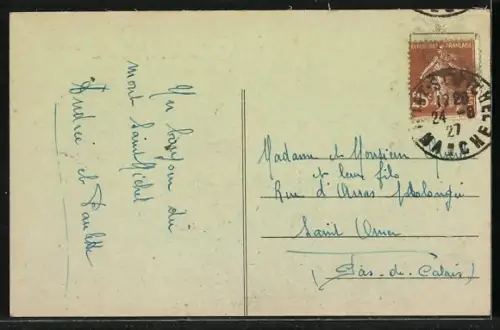 Un bonjour du
mont Saint Michel
Andrée et Paulette
REPUBLIQUE FRANCAISE
17 20
24 - 8
27
MANCHE
Madame et Monsieur
et leur fils
Rue d'Arras prolongée
Saint Omer
(Pas-de-Calais)